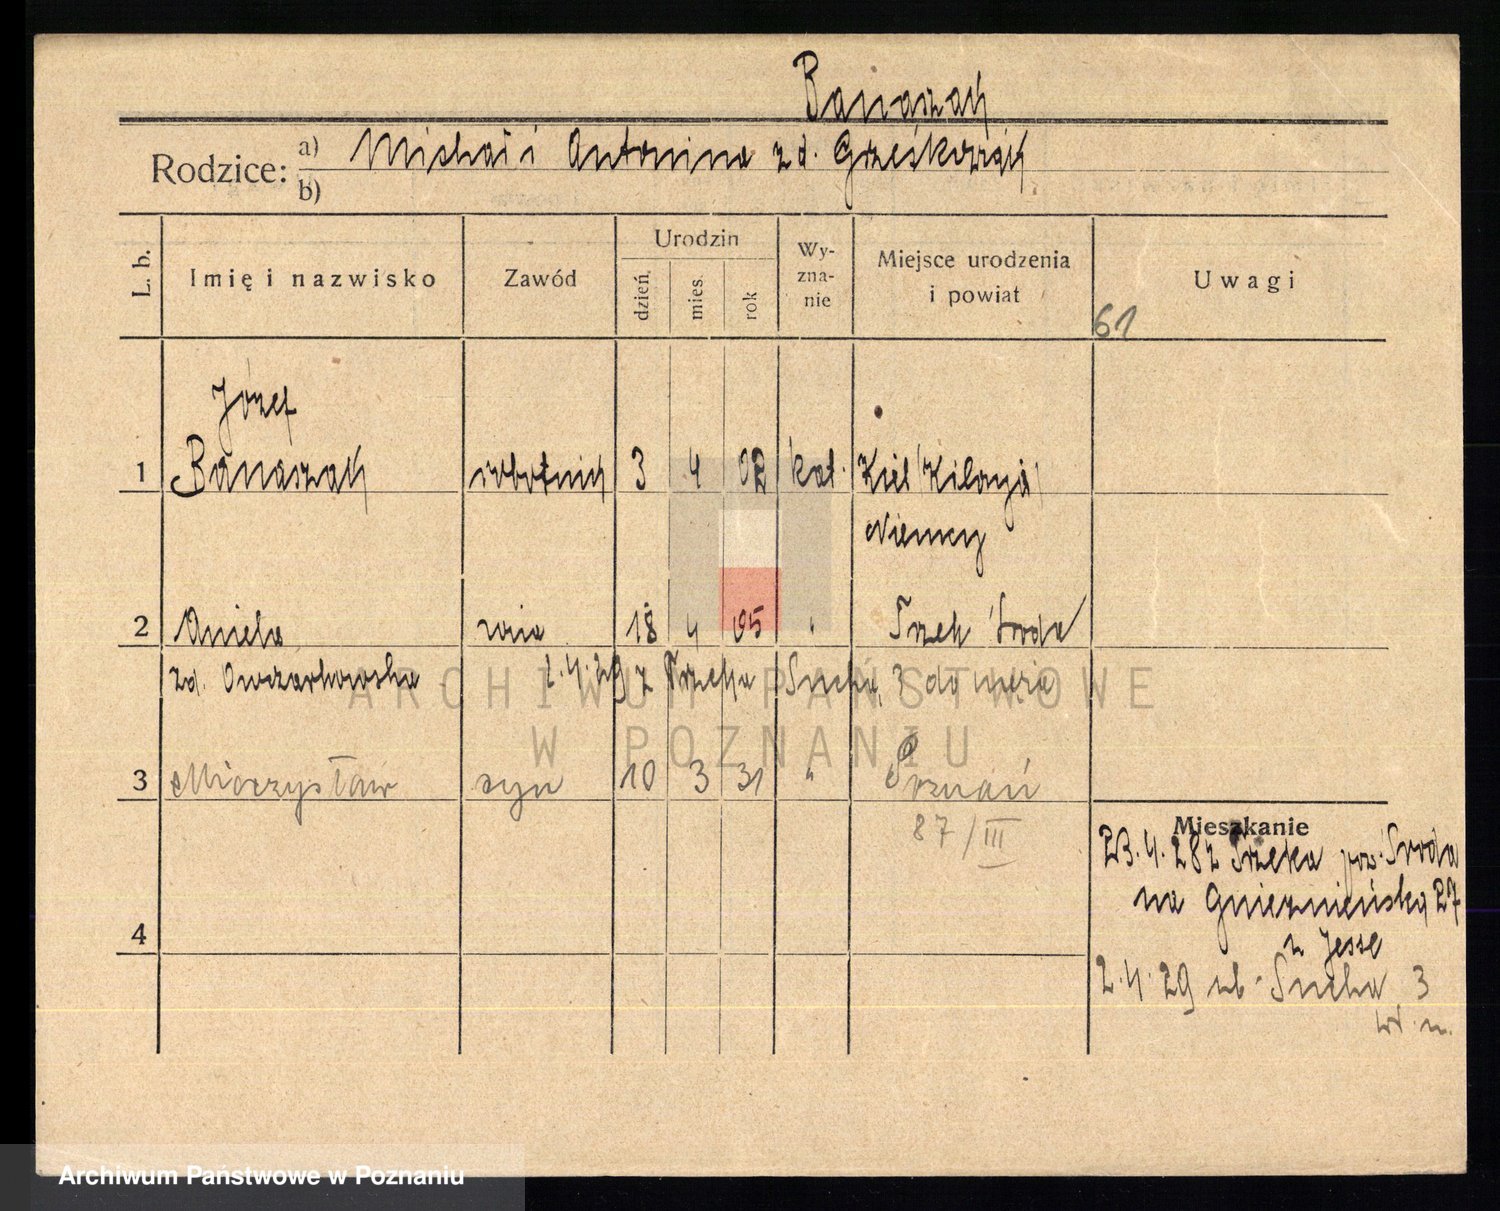 Banaszak
Rodzice: a) Michał i Antonina zd. Grześkowiak
b)
L. b. Imię i nazwisko Zawód Urodzin dzień. mies. rok Wyznanie Miejsce urodzenia i powiat Uwagi
61
Józef
1 Banaszak robotnik 3 4 02 kat. Kiel (Kilonja)
Niemcy
2 Aniela żona 18 4 05 " Trzek Środa
zd. Owczarkowska 2.4.29 z Trzeka Sucha 3 do męża
3 Mieczysław syn 10 3 31 " Poznań
87/III
4
Mieszkanie
23.4.28 z Trzeka pow. Środa
na Gnieźnieńską 27
z Jesse
2.4.29 ub. Sucha 3
ARCHIWUM PAŃSTWOWE
W POZNANIU
Archiwum Państwowe w Poznaniu